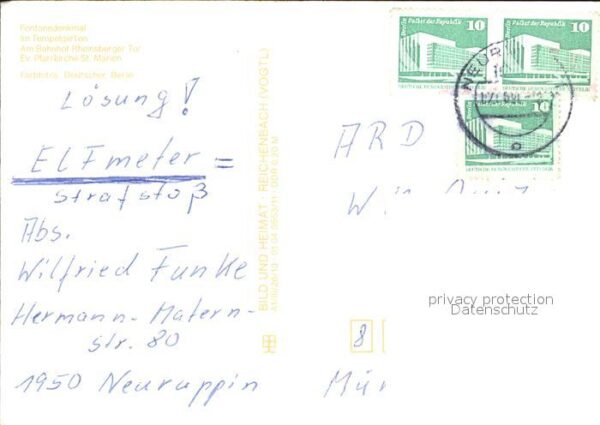 Fontanedenkmal
Im Tempelgarten
Am Bahnhof Rheinsberger Tor
Ev. Pfarrkirche St. Marien
Farbfotos: Deutscher, Berlin
Lösung!
ELFmeter =
Strafstoß
Abs.
Wilfried Funke
Hermann-Matern-
str. 80
1950 Neuruppin
BILD UND HEIMAT · REICHENBACH (VOGTL)
Berlin Palast der Republik 10
Palast der Republik 10
10
DEUTSCHE DEMOKRATISCHE REPUBLIK
NEUR
ARD
W
privacy protection
Datenschutz
8
Mün